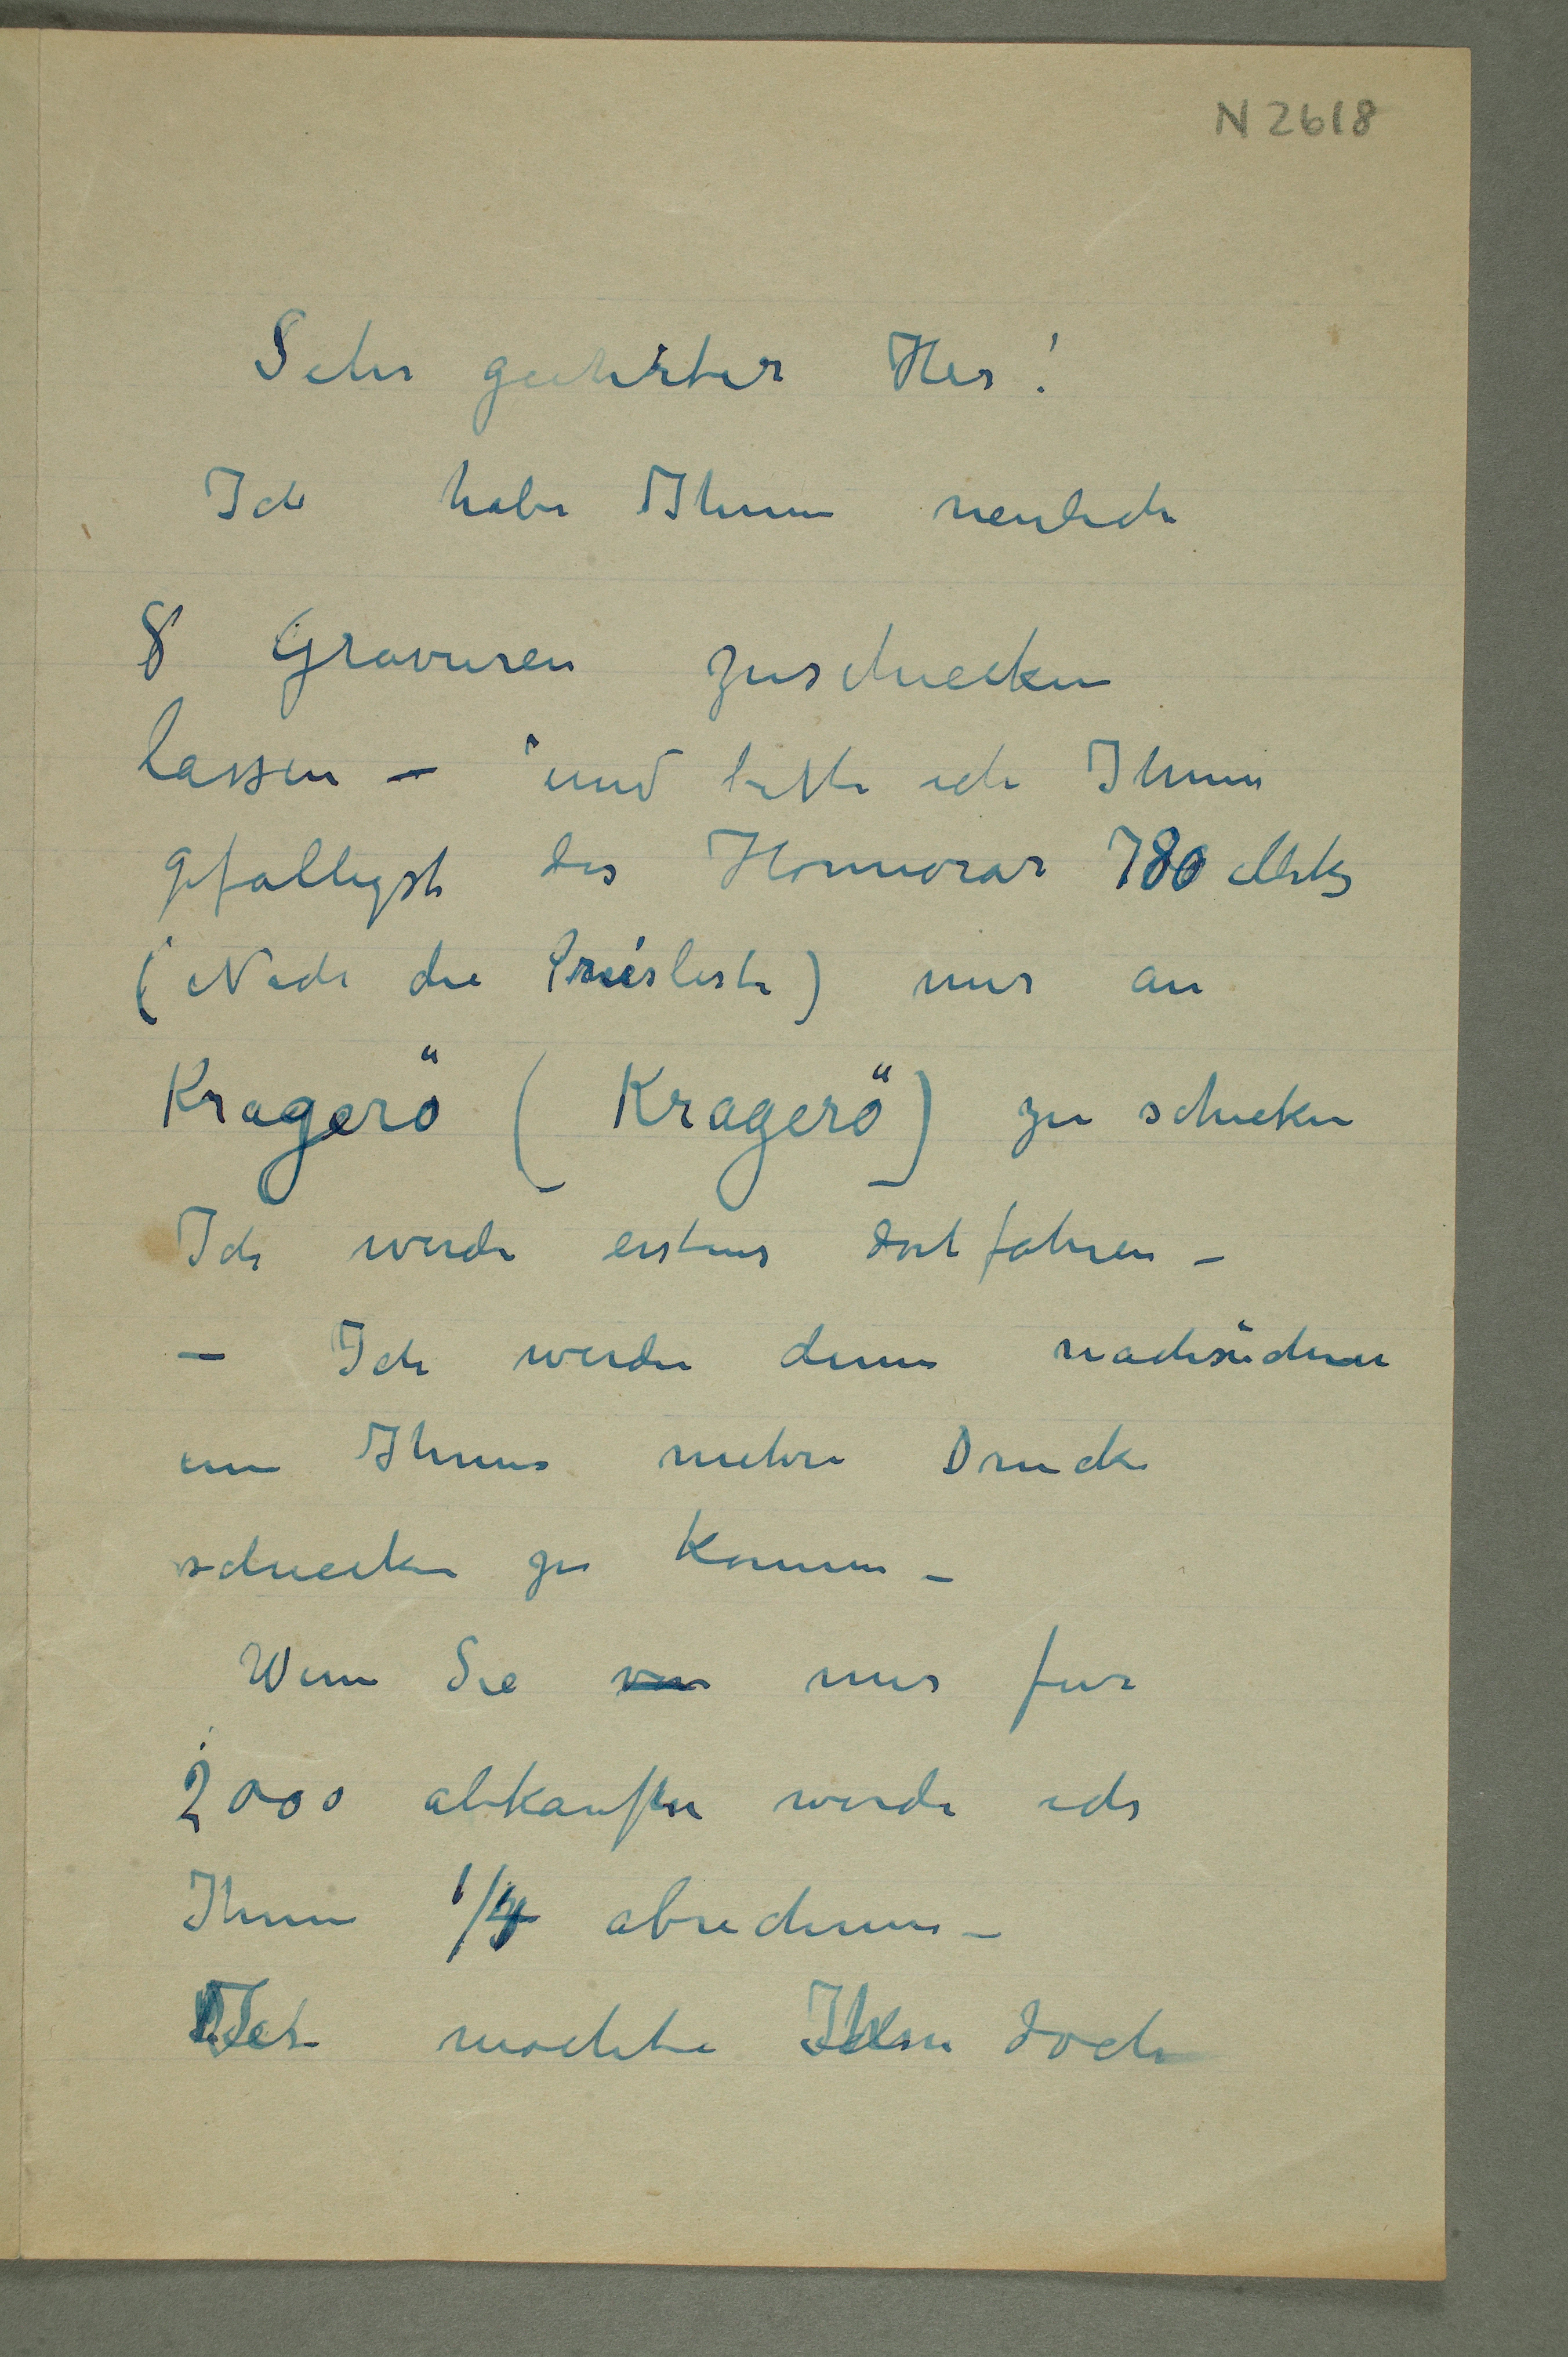 N 2618
Sehr geehrter Her!
Ich habe Ihnen neulich
8 Gravuren zuschiecken
lassen – und bitte ich Ihnen
gefalligst das Honnorar 780 Mk
(Nach die Preisliste) mir an
Kragerö (Kragerö) zu schicken
Ich werde erstens dort fahren –
– Ich werde denn nachsüchen
um Ihnen mehre Drucke
schiecken zu können –
Wenn Sie von mir fur
2000 abkaufen werde ich
Ihnen 1/4 abrechnen –
Ich mochte Ihnen doch